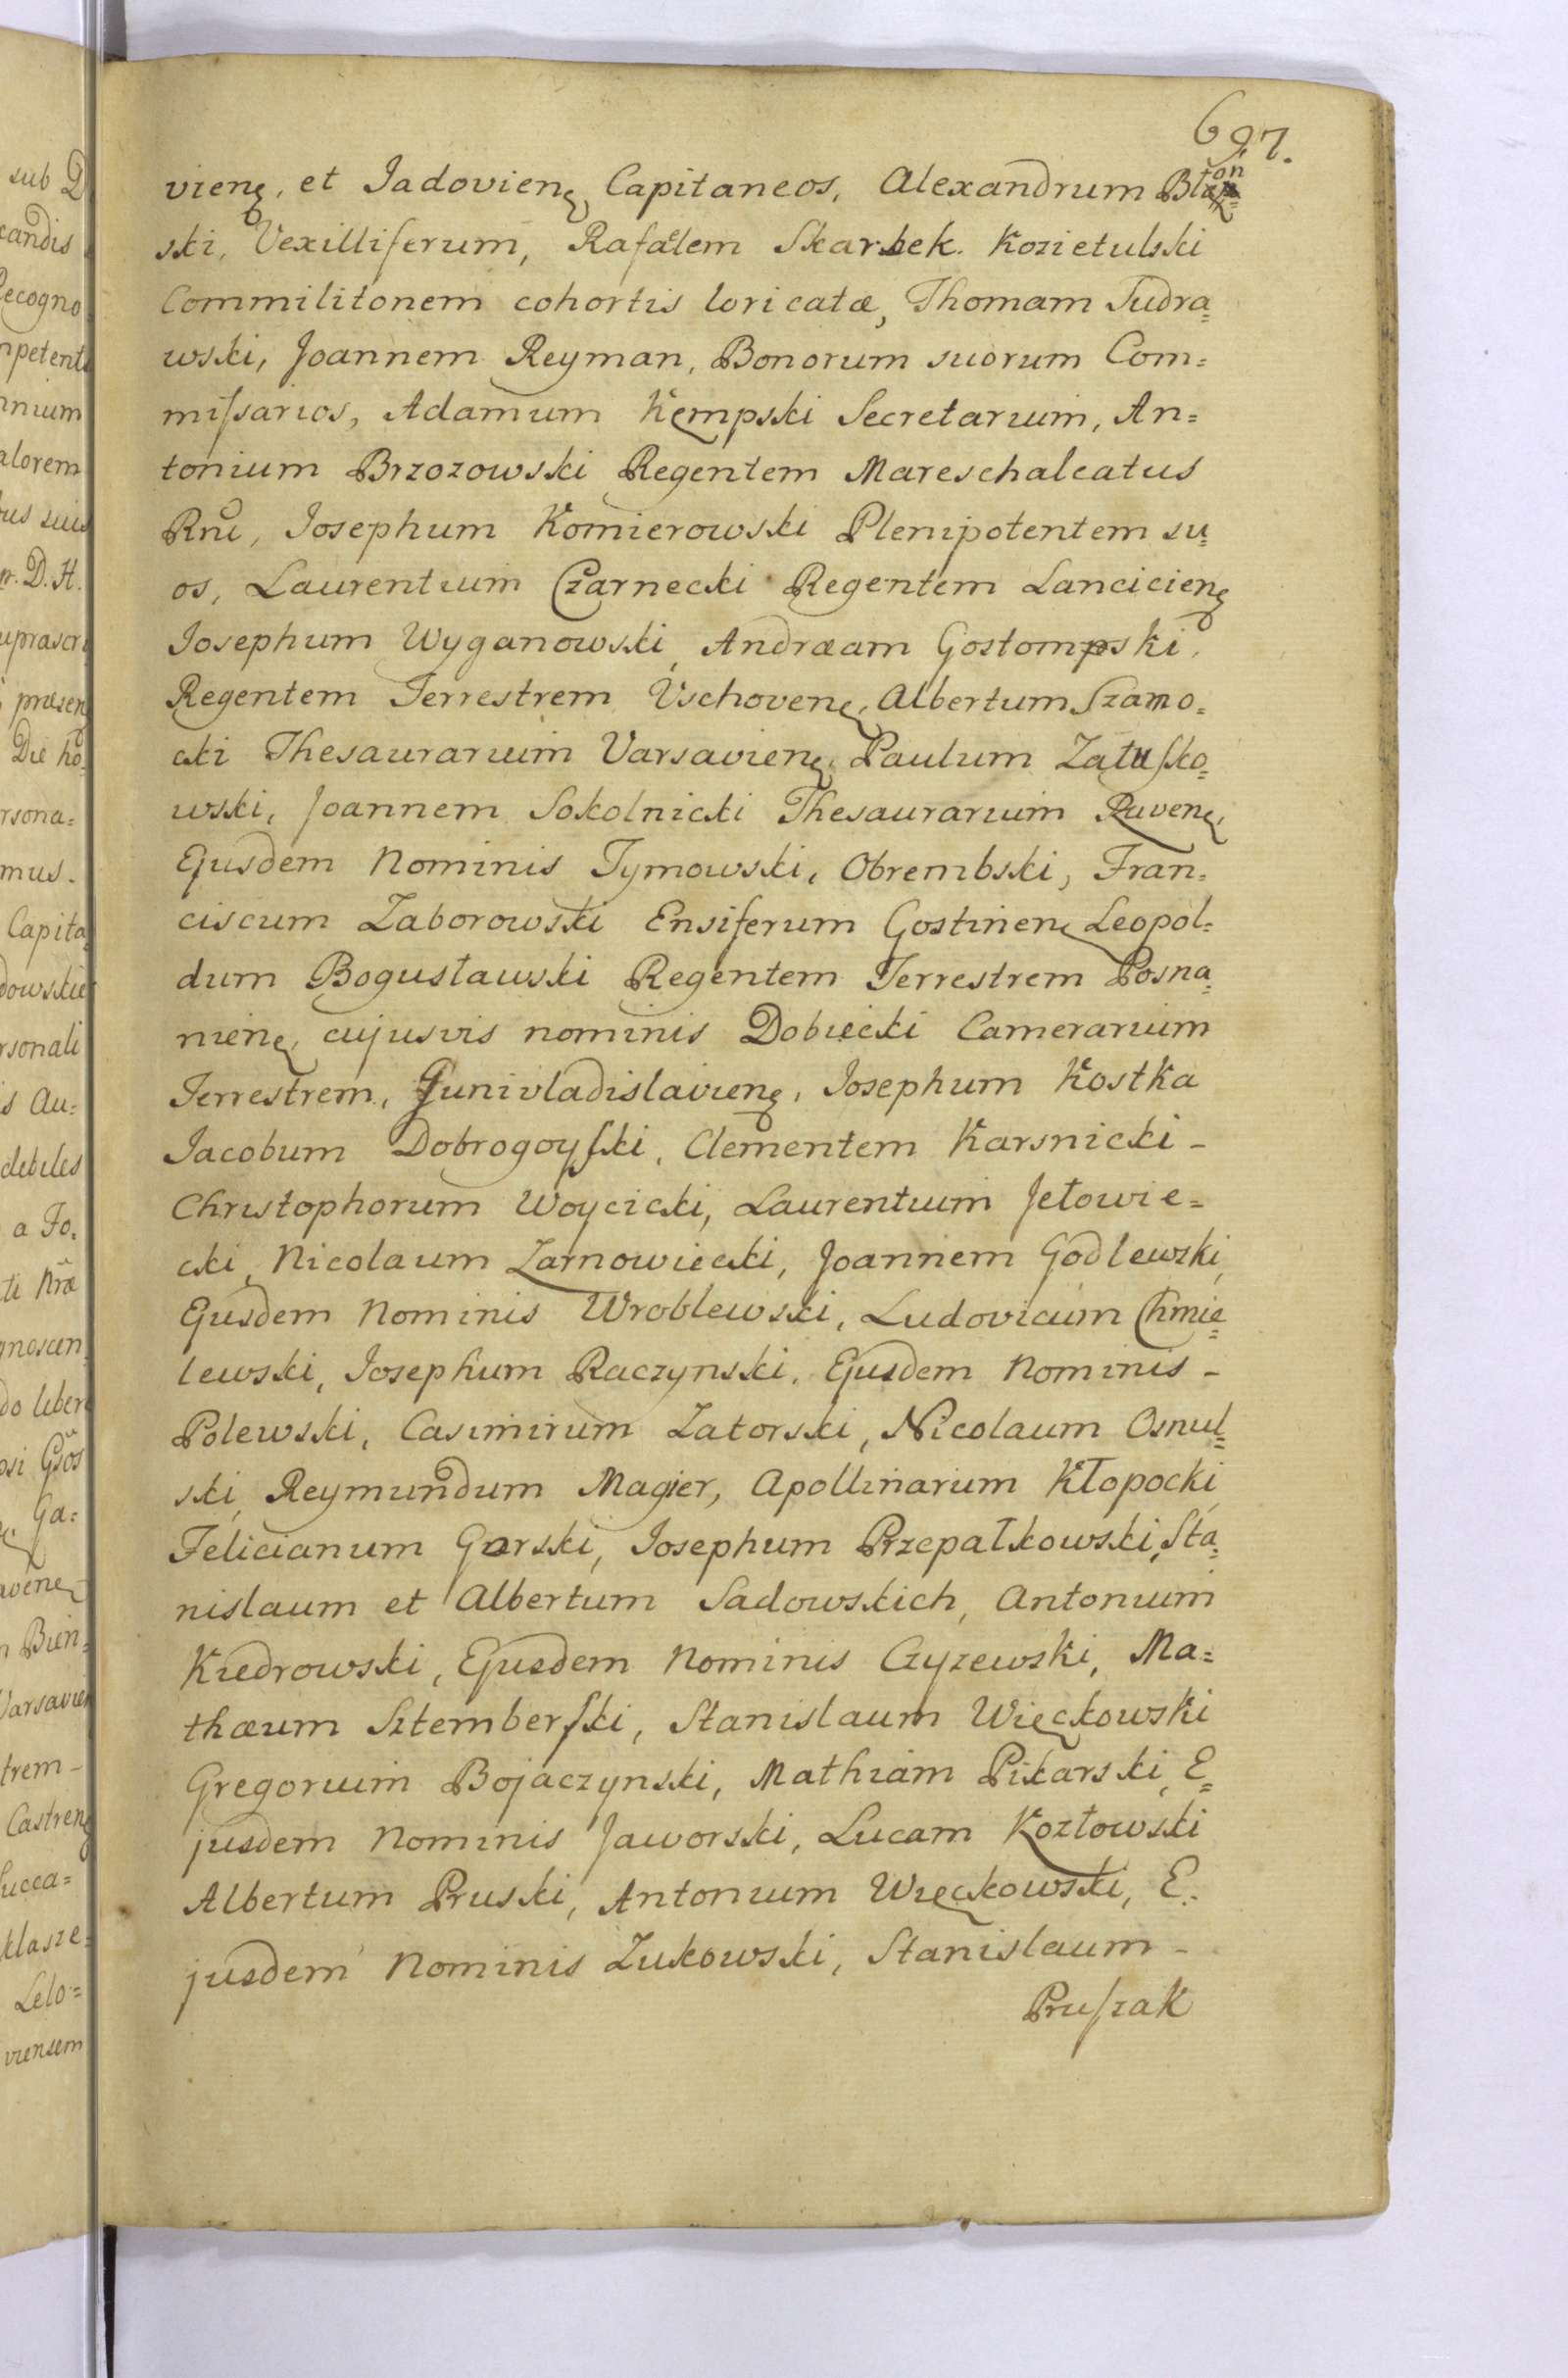 697.
vienę, et Jadovienę Capitaneos, Alexandrum Błoń=
ski, Vexilliferum, Rafaëlem Skarbek Kozietulski
Commilitonem cohortis loricatæ, Thomam Sudra=
wski, Joannem Reyman, Bonorum suorum Com=
miſsarios, Adamum Kempski Secretarium, An=
tonium Brzozowski Regentem Mareschalcatus
Rnĩ, Josephum Komierowski Plenipotentem su=
os, Laurentium Czarnecki Regentem Lancicienę
Josephum Wyganowski, Andræam Gostompski,
Regentem Terrestrem Vschovenę, Albertum Szamo=
cki Thesaurarium Varsavienę, Paulum Załuſko=
wski, Joannem Sokolnicki Thesaurarium Ravenę,
Ejusdem Nominis Tymowski, Obrembski, Fran=
ciscum Zaborowski Ensiferum Gostinenę Leopol=
dum Bogusławski Regentem Terrestrem Posna=
nienę, cujusvis nominis Dobiecki Camerarium
Terrestrem, Junivladislavienę, Josephum Kostka
Jacobum Dobrogoyſki, Clementem Karsnicki -
Christophorum Woycicki, Laurentium Jełowie=
cki, Nicolaum Zarnowiecki, Joannem Godlewski,
Ejusdem Nominis Wroblewski, Ludovicum Chmie=
lewski, Josephum Raczynski, Ejusdem Nominis -
Polewski, Casimirum Zatorski, Nicolaum Osnul=
ski, Reymundum Magier, Apollinarium Kłopocki
Felicianum Gorski, Josephum Przepałkowski, Sta=
nislaum et Albertum Sadowskich, Antonium
Kiedrowski, Ejusdem Nominis Czyzewski, Ma=
thæum Sztemberſki, Stanislaum Więckowski
Gregorium Bojaczynski, Mathiam Pikarski, E=
jusdem Nominis Jaworski, Lucam Kozłowski
Albertum Pruski, Antonium Więckowski, E=
jusdem Nominis Zukowski, Stanislaum -
Pruſzak